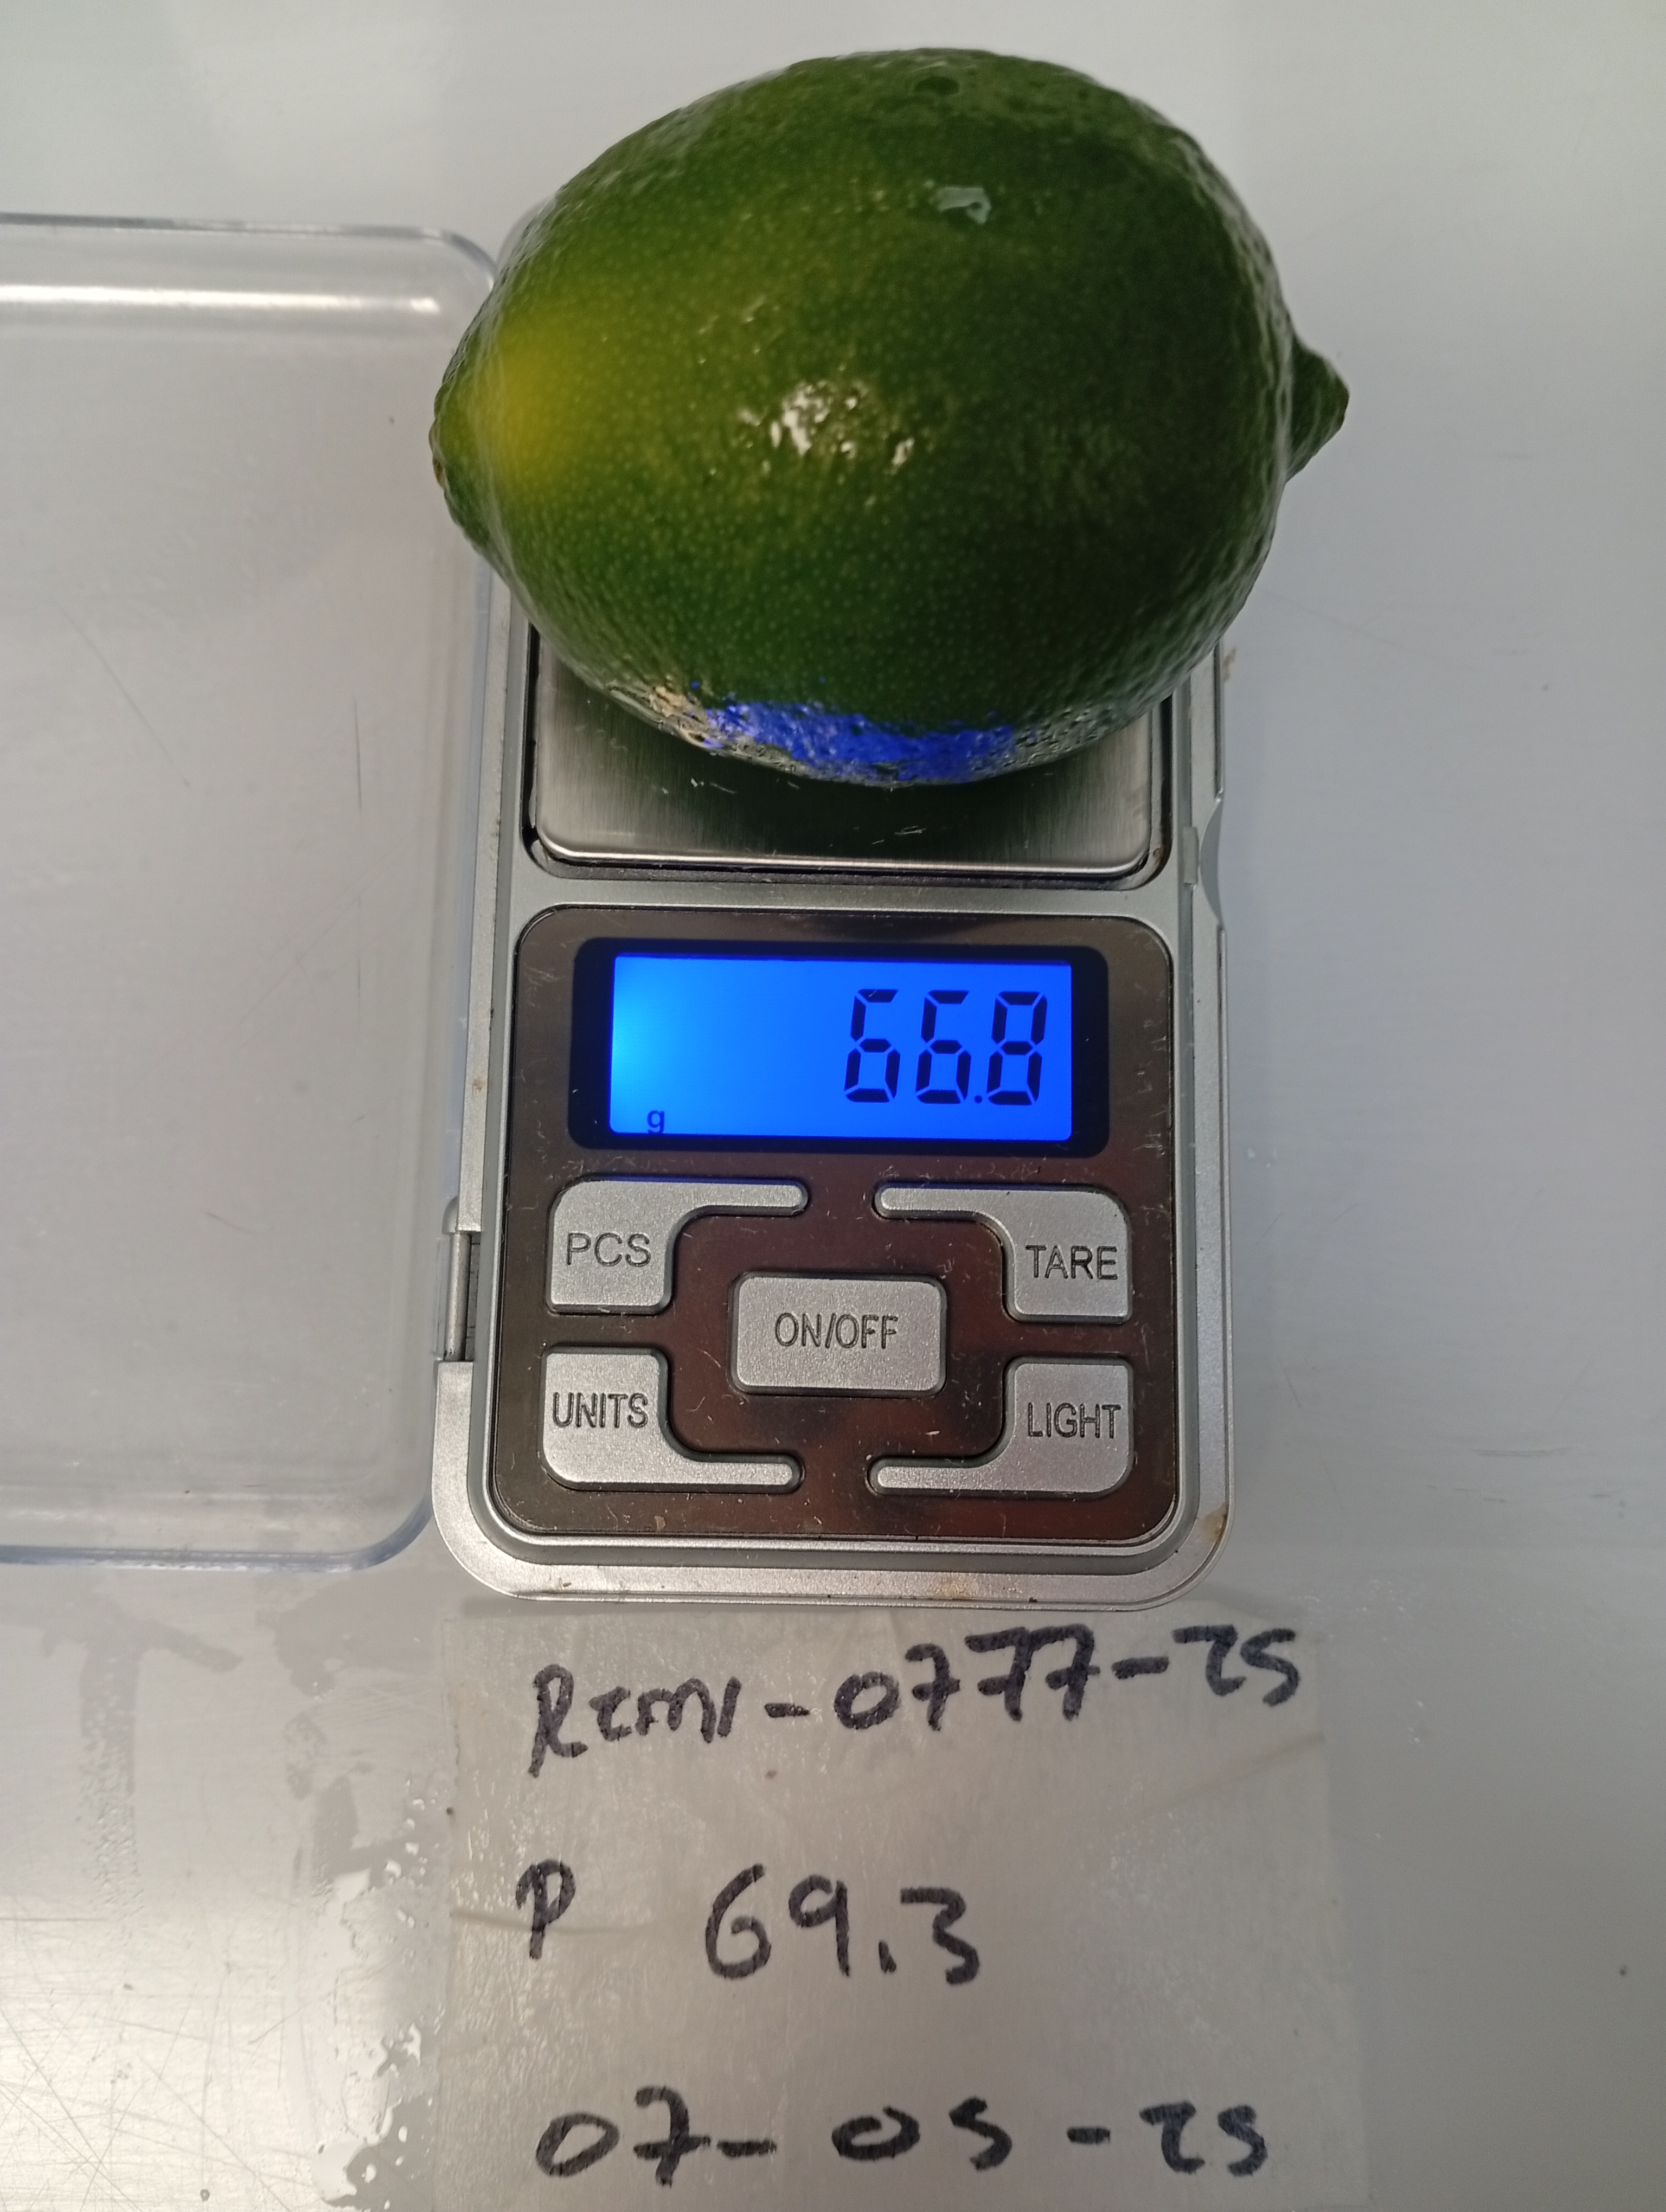 66.8
g
PCS
TARE
ON/OFF
UNITS
LIGHT
Remi-0777-25
P 69.3
07-05-25